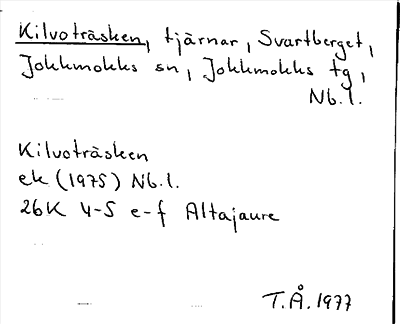 Kilvoträsken, tjärnar, Svartberget,
Jokkmokks sn, Jokkmokks tg,
Nb.l.
Kilvoträsken
ek (1975) Nb.l.
26K 4-5 e-f Altajaure
T.Å. 1977